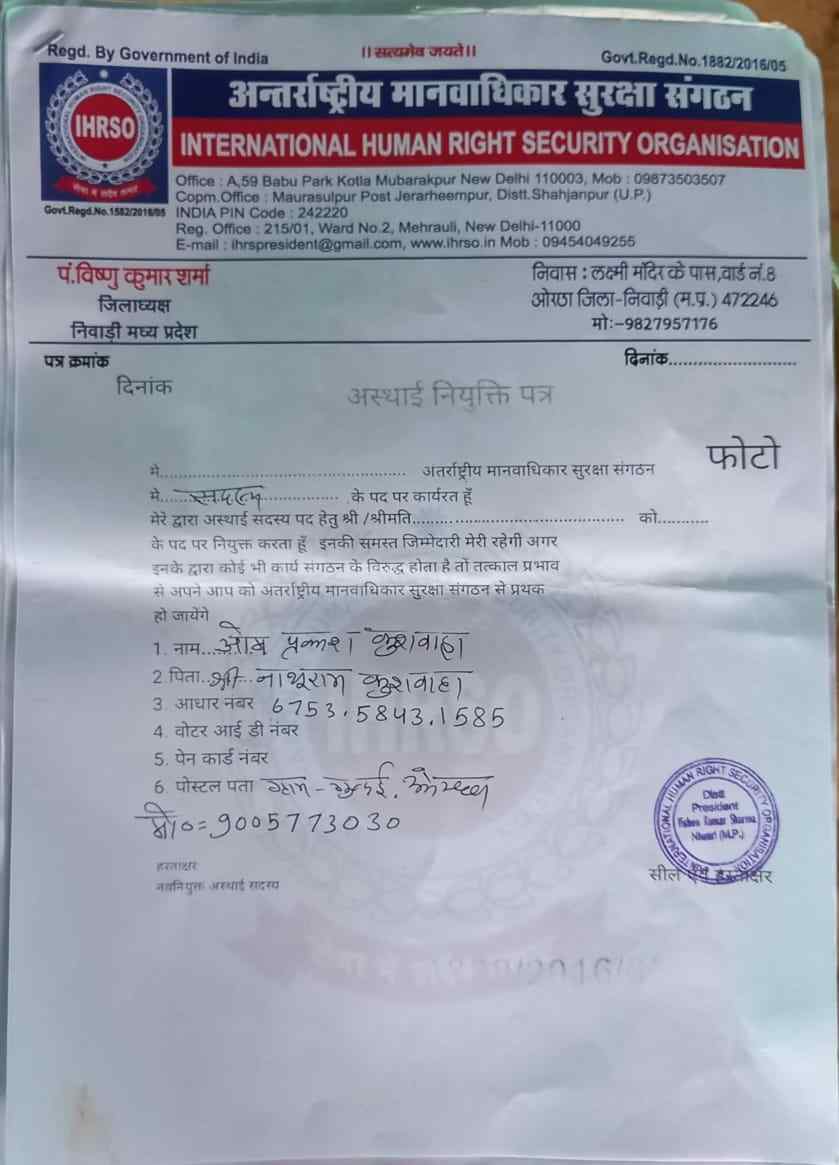 Regd. By Government of India
।।सत्यमेव जयते।।
Govt.Regd.No.1882/2016/05
IHRSO
Govt.Regd.No.1582/2016/05
अन्तर्राष्ट्रीय मानवाधिकार सुरक्षा संगठन
INTERNATIONAL HUMAN RIGHT SECURITY ORGANISATION
Office : A,59 Babu Park Kotla Mubarakpur New Delhi 110003, Mob : 09873503507
Copm.Office : Maurasulpur Post Jerarheempur, Distt.Shahjanpur (U.P.)
INDIA PIN Code : 242220
Reg. Office : 215/01, Ward No.2, Mehrauli, New Delhi-11000
E-mail : ihrspresident@gmail.com, www.ihrso.in Mob : 09454049255
पं.विष्णु कुमार शर्मा
जिलाध्यक्ष
निवाड़ी मध्य प्रदेश
निवास : लक्ष्मी मंदिर के पास,वार्ड नं.8
ओरछा जिला-निवाड़ी (म.प्र.) 472246
मो:-9827957176
पत्र क्रमांक
दिनांक..........................
दिनांक
अस्थाई नियुक्ति पत्र
फोटो
मे................................................ अतर्राष्ट्रीय मानवाधिकार सुरक्षा संगठन
मे.....सदस्य................ के पद पर कार्यरत हूँ
मेरे द्वारा अस्थाई सदस्य पद हेतु श्री /श्रीमति......................................... को..........
के पद पर नियुक्त करता हूँ इनकी समस्त जिम्मेदारी मेरी रहेगी अगर
इनके द्वारा कोई भी कार्य संगठन के विरुद्ध होता है तों तत्काल प्रभाव
से अपने आप को अंतर्राष्ट्रीय मानवाधिकार सुरक्षा संगठन से प्रथक
हो जायेंगे
1. नाम...ओम प्रकाश कुशवाहा
2 पिता..श्री...नाथूराम कुशवाहा
3. आधार नंबर 6753.5843.1585
4. वोटर आई डी नंबर
5. पेन कार्ड नंबर
6. पोस्टल पता ग्राम -
मो०=9005773030
हस्ताक्षर
नवनियुक्त अस्थाई सदस्य
INTERNATIONAL HUMAN RIGHT SECURITY ORGANISATION
Distt
President
Vishnu Kumar Sharma
Niwari (M.P.)
सील एवं हस्ताक्षर